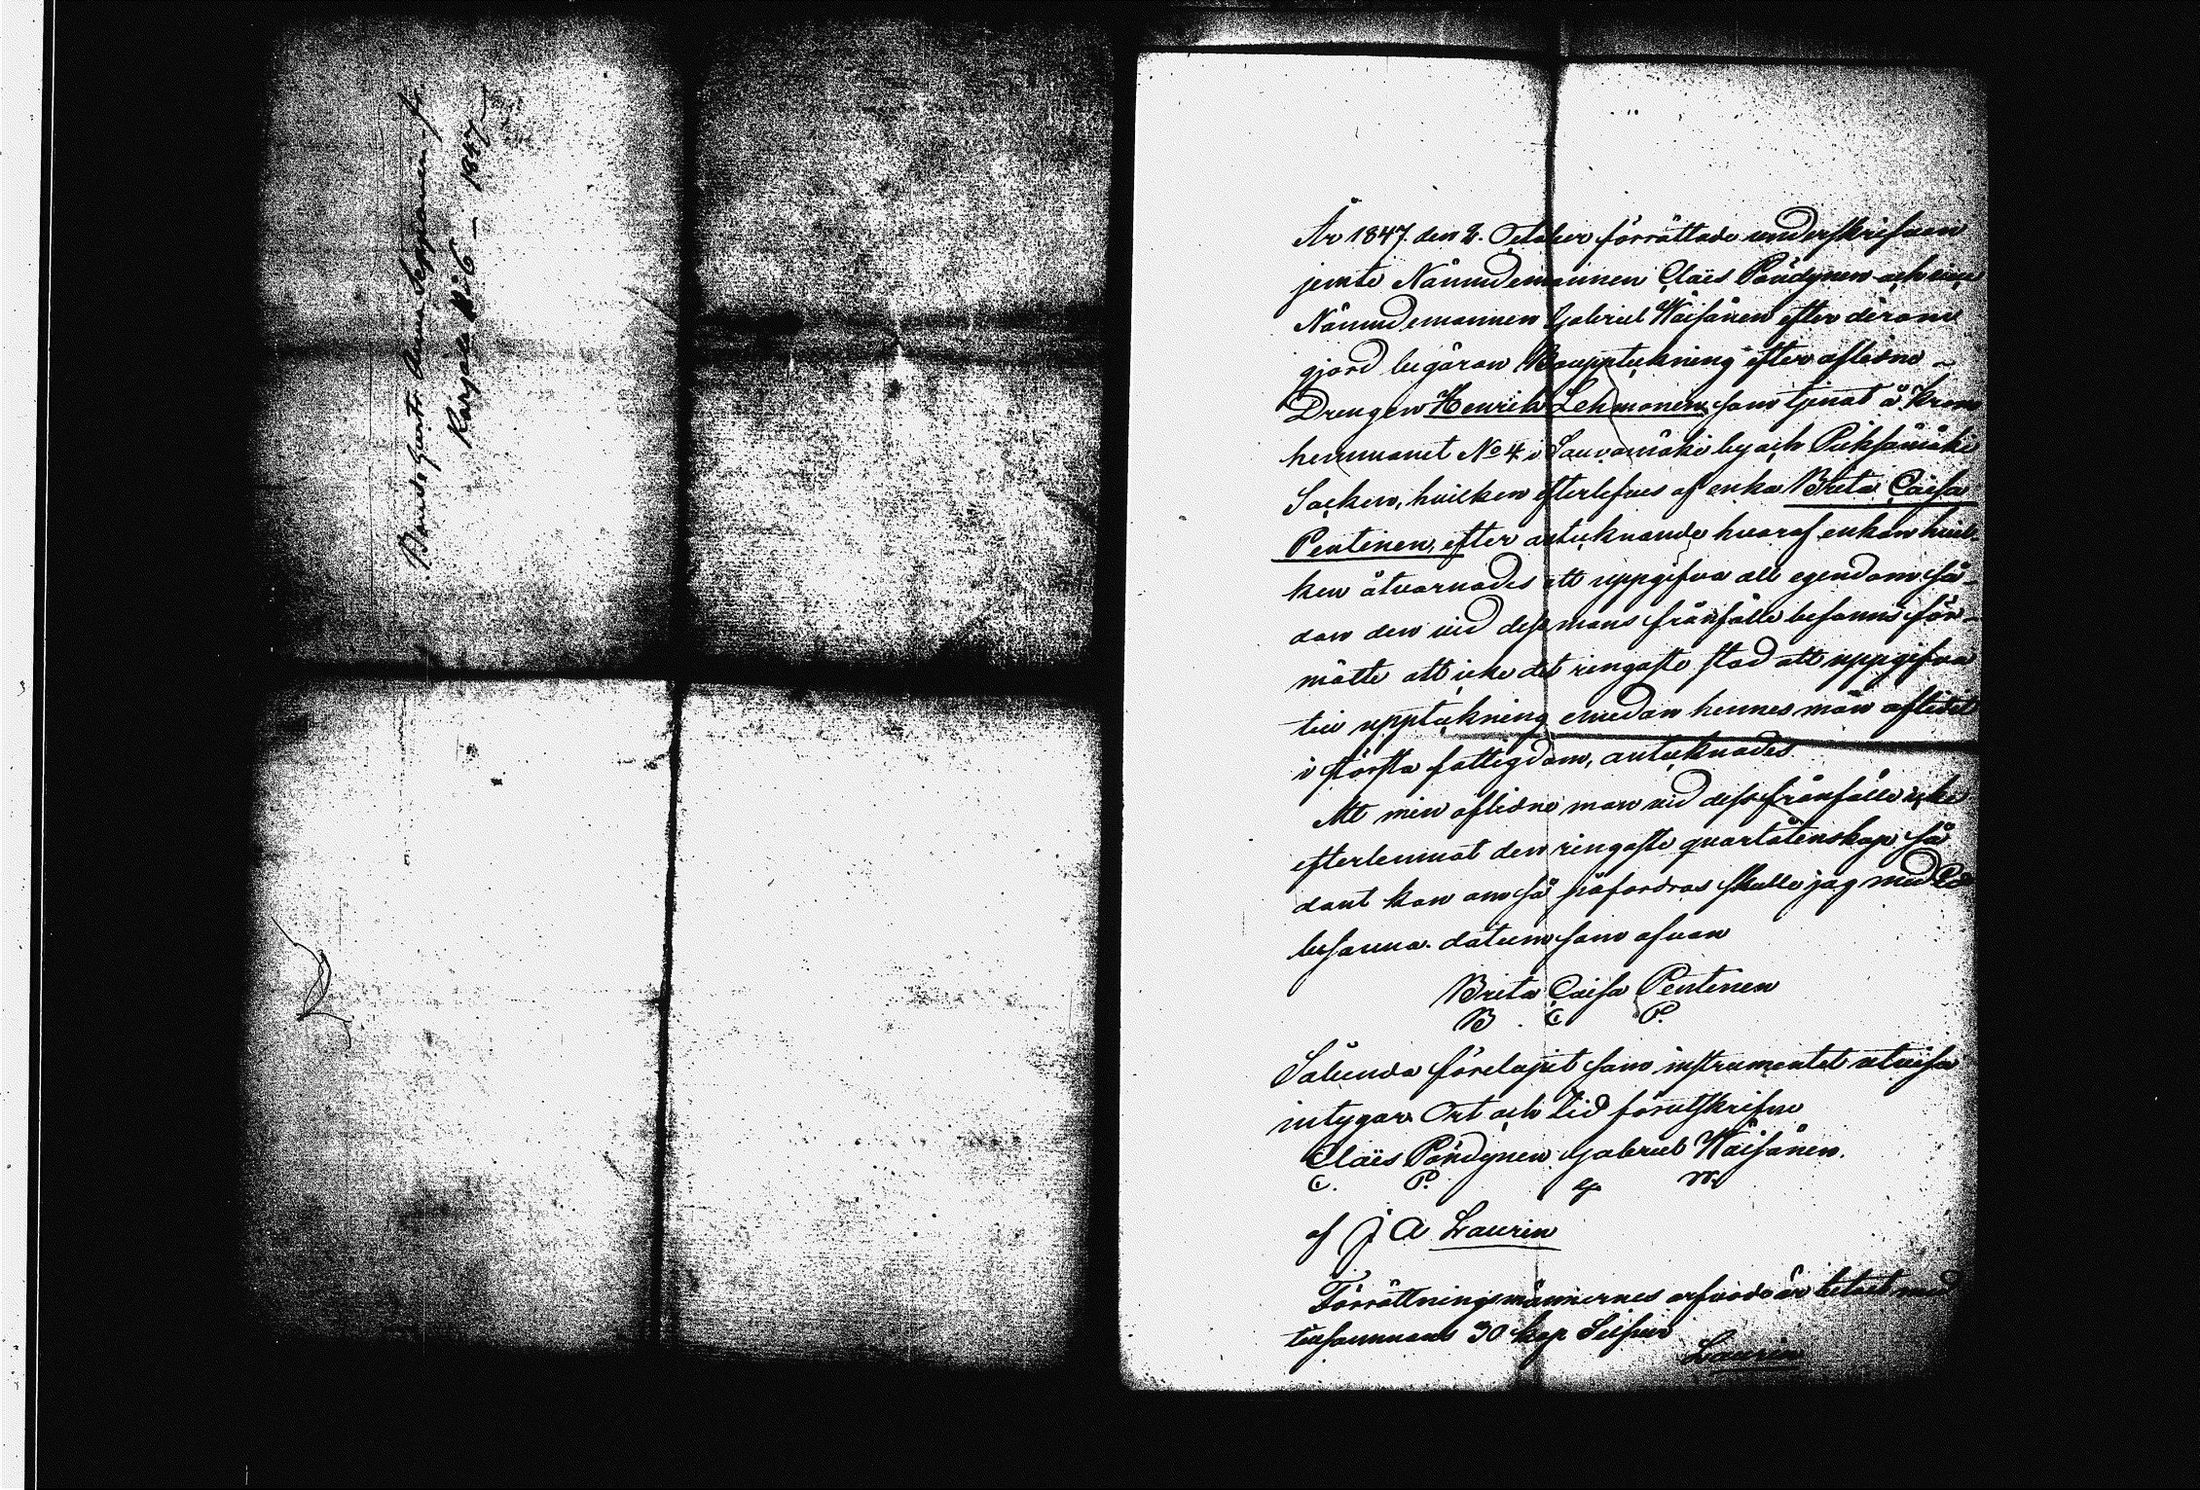 Bonde Enkan Anna Seppänen fr.
Karjala No 6 – 1847
År 1847. den 2. October förrättade underskrifven
jemte Nämndemannen Claës Pöndynen och min
Nämndemannen Gabriel Wäisänen efter derom
gjord begäran Bouppteckning efter aflidne
Drengen Henrik Lehmonen som tjenat å Krono
hemmanet No 4 i Sauvamäki by och Pieksämäki
Socken, hvilken efterlefves af enka Brita Caisa
Pentinen, efter antecknande hvaraf enkan hvil-
ken åtvarnades att uppgifva all egendom så-
dan den vid dess mans frånfälle befanns för-
mälte att icke det ringaste stod att uppgifva
till uppteckning emedan hennes man aflidit
i största fattigdom, antecknades.
Att min aflidne man vid dess frånfälle icke
efterlemnat den ringaste qvarlåtenskap så
dant kan om så påfordras skulle jag med Ed
besanna. datum som ofvan
Brita Caisa Pentinen
B. C. P.
Sålunda förelupit som instrumentet utvisar
intygar. Ort och tid förutskrifne
Claës Pöndynen Gabriel Wäisänen.
C. P. G W.
af J A Laurin
Förrättningsmännernes arfvode är betalt med
tillsammans 30 kop Silfver
Laurin